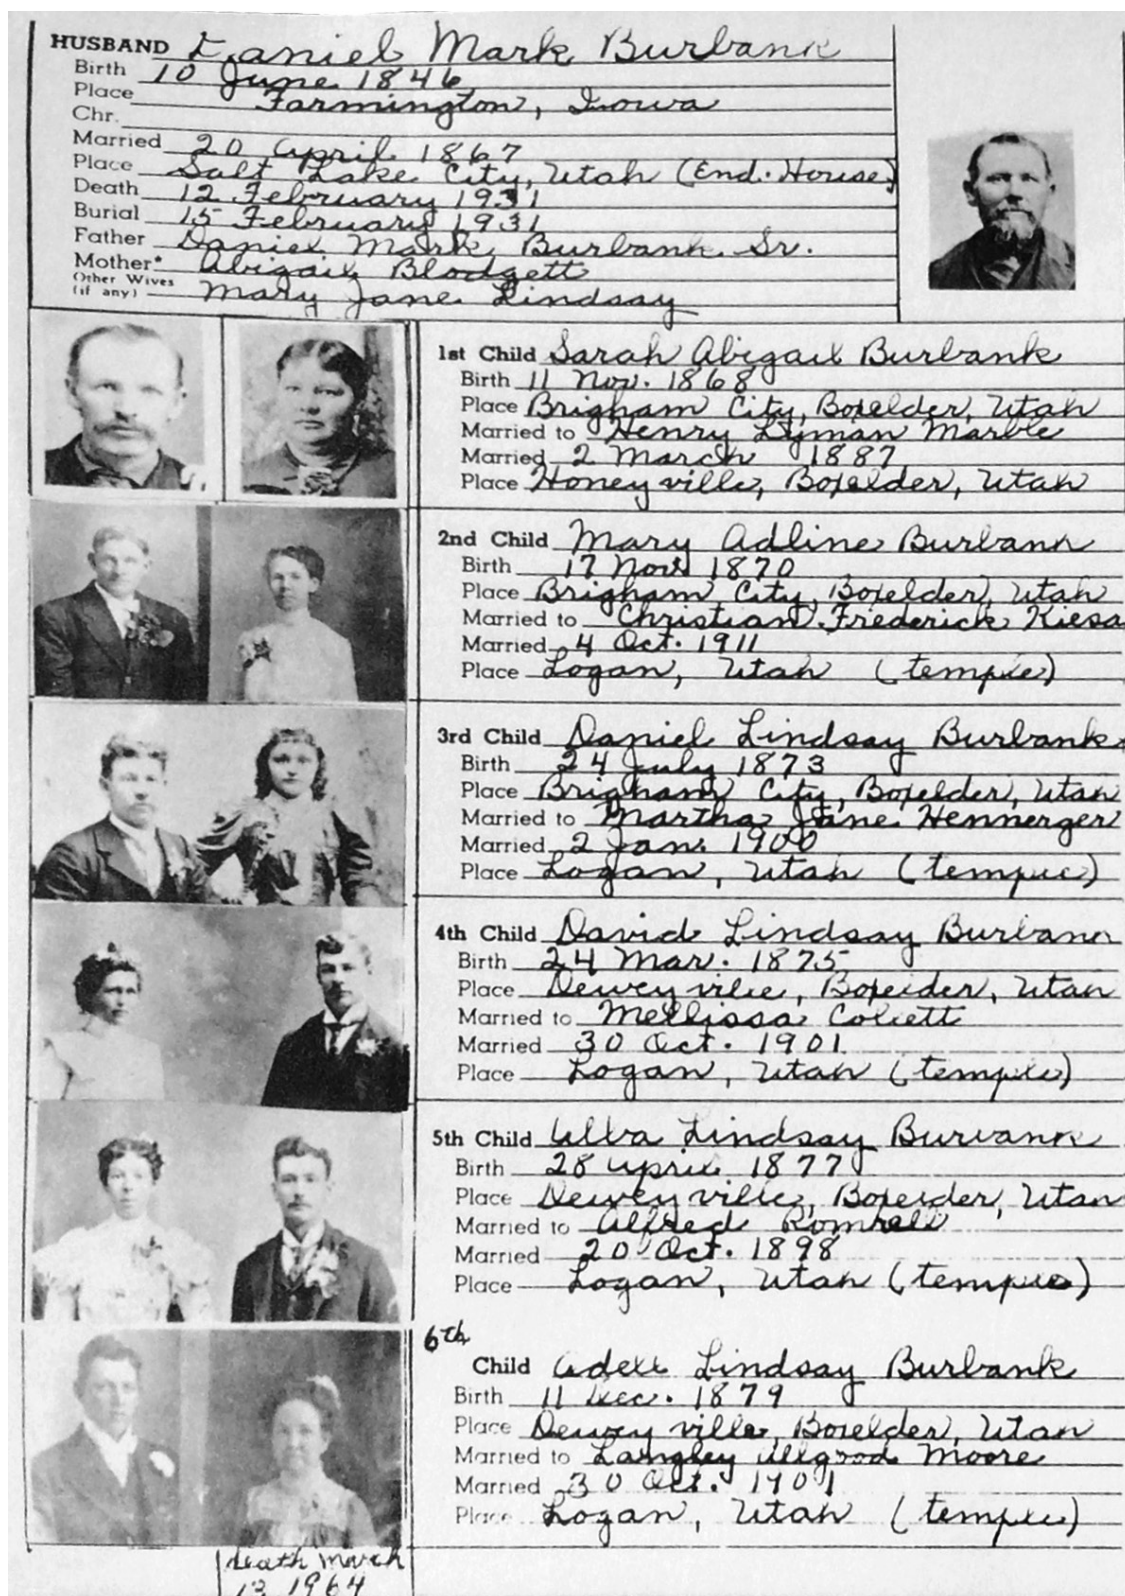 HUSBAND Daniel Mark Burbank
Birth 10 June 1846
Place Farmington, Iowa
Chr.
Married 20 April 1867
Place Salt Lake City, Utah (End. House)
Death 12 February 1931
Burial 15 February 1931
Father Daniel Mark Burbank Sr.
Mother* Abigail Blodgett
Other Wives (if any) Mary Jane Lindsay
1st Child Sarah Abigail Burbank
Birth 11 Nov. 1868
Place Brigham City, Boxelder, Utah
Married to Henry Lyman Marble
Married 2 March 1887
Place Honeyville, Boxelder, Utah
2nd Child Mary Adline Burbank
Birth 17 Nov 1870
Place Brigham City, Boxelder, Utah
Married to Christian Frederick Kiesa
Married 4 Oct. 1911
Place Logan, Utah (temple)
3rd Child Daniel Lindsay Burbank
Birth 24 July 1873
Place Brigham City, Boxelder, Utah
Married to Martha Jane Hennerger
Married 2 Jan. 1900
Place Logan, Utah (temple)
4th Child David Lindsay Burbank
Birth 24 Mar. 1875
Place Deweyville, Boxelder, Utah
Married to Mellissa Collett
Married 30 Oct. 1901
Place Logan, Utah (temple)
5th Child Lindsay Burbank
Birth 28 April 1877
Place Deweyville, Boxelder, Utah
Married to Alfred Romrell
Married 20 Oct. 1898
Place Logan, Utah (temple)
6th
Child Adell Lindsay Burbank
Birth 11 Dec. 1879
Place Deweyville, Boxelder, Utah
Married to Langley Allgood Moore
Married 30 Oct. 1901
Place Logan, Utah (temple)
death March
13 1964